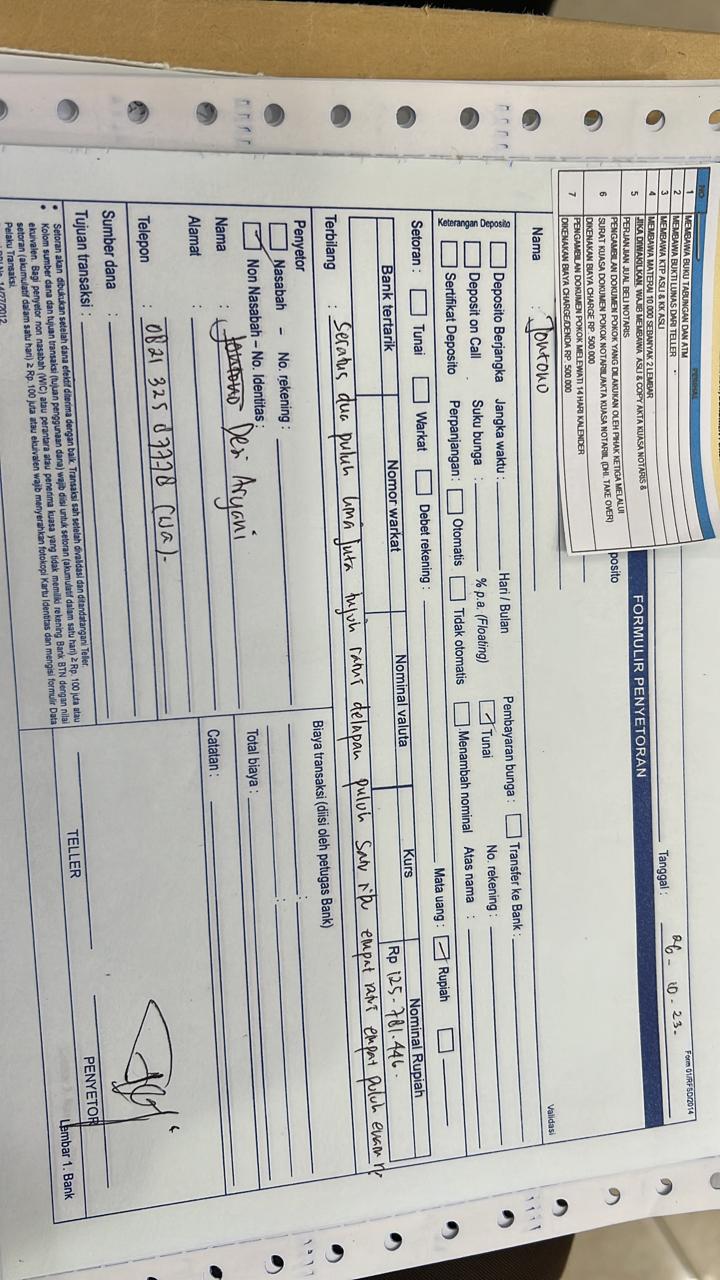 NO PERIHAL
1 MEMBAWA BUKU TABUNGAN DAN ATM
2 MEMBAWA BUKTI LUNAS DARI TELLER
3 MEMBAWA KTP ASLI & KK ASLI
4 MEMBAWA MATERAI 10.000 SEBANYAK 2 LEMBAR
5 JIKA DIWAKILKAN, WAJIB MEMBAWA ASLI & COPY AKTA KUASA NOTARIS &
PERJANJIAN JUAL BELI NOTARIS
6 PENGAMBILAN DOKUMEN POKOK YANG DILAKUKAN OLEH PIHAK KETIGA MELALUI
SURAT KUASA DOKUMEN POKOK NOTARIL/AKTA KUASA NOTARIIL (DHI. TAKE OVER)
DIKENAKAN BIAYA CHARGE RP. 500.000
7 PENGAMBILAN DOKUMEN POKOK MELEWATI 14 HARI KALENDER
DIKENAKAN BIAYA CHARGE/DENDA RP. 500.000
Form 01/RFSD/2014
Tanggal : 26 - 10 - 23 -
FORMULIR PENYETORAN
posito
Validasi
Nama : Jontono
Keterangan Deposito
Deposito Berjangka Jangka waktu : Hari / Bulan Pembayaran bunga : Transfer ke Bank :
Deposit on Call Suku bunga : % p.a. (Floating) Tunai No. rekening :
Sertifikat Deposito Perpanjangan : Otomatis Tidak otomatis Menambah nominal Atas nama :
Setoran : Tunai Warkat Debet rekening : Mata uang : Rupiah
Bank tertarik Nomor warkat Nominal valuta Kurs Nominal Rupiah
Rp 125.781.446.
Terbilang : Seratus dua puluh lima juta tujuh ratus delapan puluh satu ribu empat ratus empat puluh enam rp
Penyetor
Nasabah - No. rekening :
Non Nasabah - No. Identitas :
Nama : Jontono Desi Aryani
Alamat :
Telepon : 0821 325 87778 (wa).
Sumber dana :
Tujuan transaksi :
Biaya transaksi (diisi oleh petugas Bank)
:
:
Total biaya :
Catatan :
TELLER
PENYETOR
• Setoran akan dibukukan setelah dana efektif diterima dengan baik. Transaksi sah setelah divalidasi dan ditandatangani Teller.
• Kolom sumber dana dan tujuan transaksi (tujuan penggunaan dana) wajib diisi untuk setoran (akumulatif dalam satu hari) ≥ Rp. 100 juta atau
ekuivalen. Bagi penyetor non nasabah (WIC) atau perantara atau penerima kuasa yang tidak memiliki rekening Bank BTN dengan nilai
setoran (akumulatif dalam satu hari) ≥ Rp. 100 juta atau ekuivalen wajib menyerahkan fotokopi Kartu Identitas dan mengisi formulir Data
Pelaku Transaksi.
No. 14/27/2012
Lembar 1. Bank